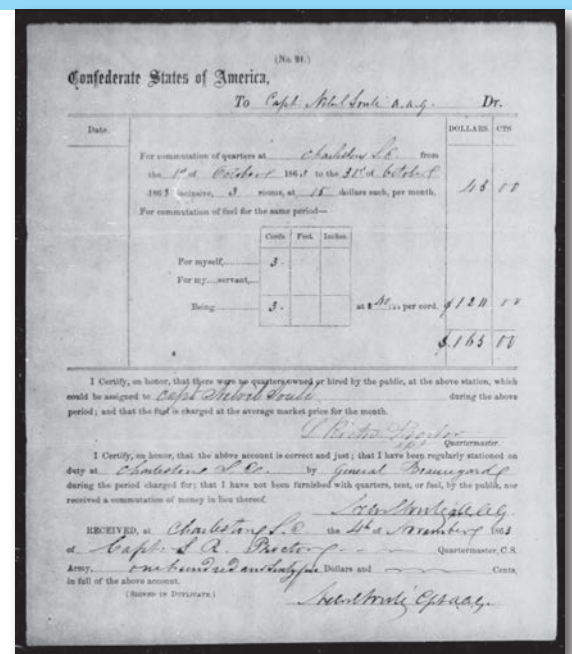 (No. 21.)
Confederate States of America,
To Capt A.A.G. Dr.
Date. DOLLARS. CTS
For commutation of quarters at Charleston S.C. from
the 1st of October 1863 to the 31st of October
1863 inclusive, 3 rooms, at 15 dollars each, per month, 45 00
For commutation of fuel for the same period—
Cords. Feet. Inches.
For myself, 3
For my servant,
Being 3 at $40 per cord. $120 00
$165 00
I Certify, on honor, that there were no quarters owned or hired by the public, at the above station, which
could be assigned to Capt during the above
period; and that the fuel is charged at the average market price for the month.
Proctor
Quartermaster.
I Certify, on honor, that the above account is correct and just; that I have been regularly stationed on
duty at Charleston S. Ca. by General Beauregard
during the period charged for; that I have not been furnished with quarters, tent, or fuel, by the public, nor
received a commutation of money in lieu thereof.
RECEIVED, at Charleston S.C. the 4th of November 1863
of Capt. Proctor Quartermaster, C.S.
Army, one hundred and sixty five Dollars and Cents,
in full of the above account.
(SIGNED IN DUPLICATE.)